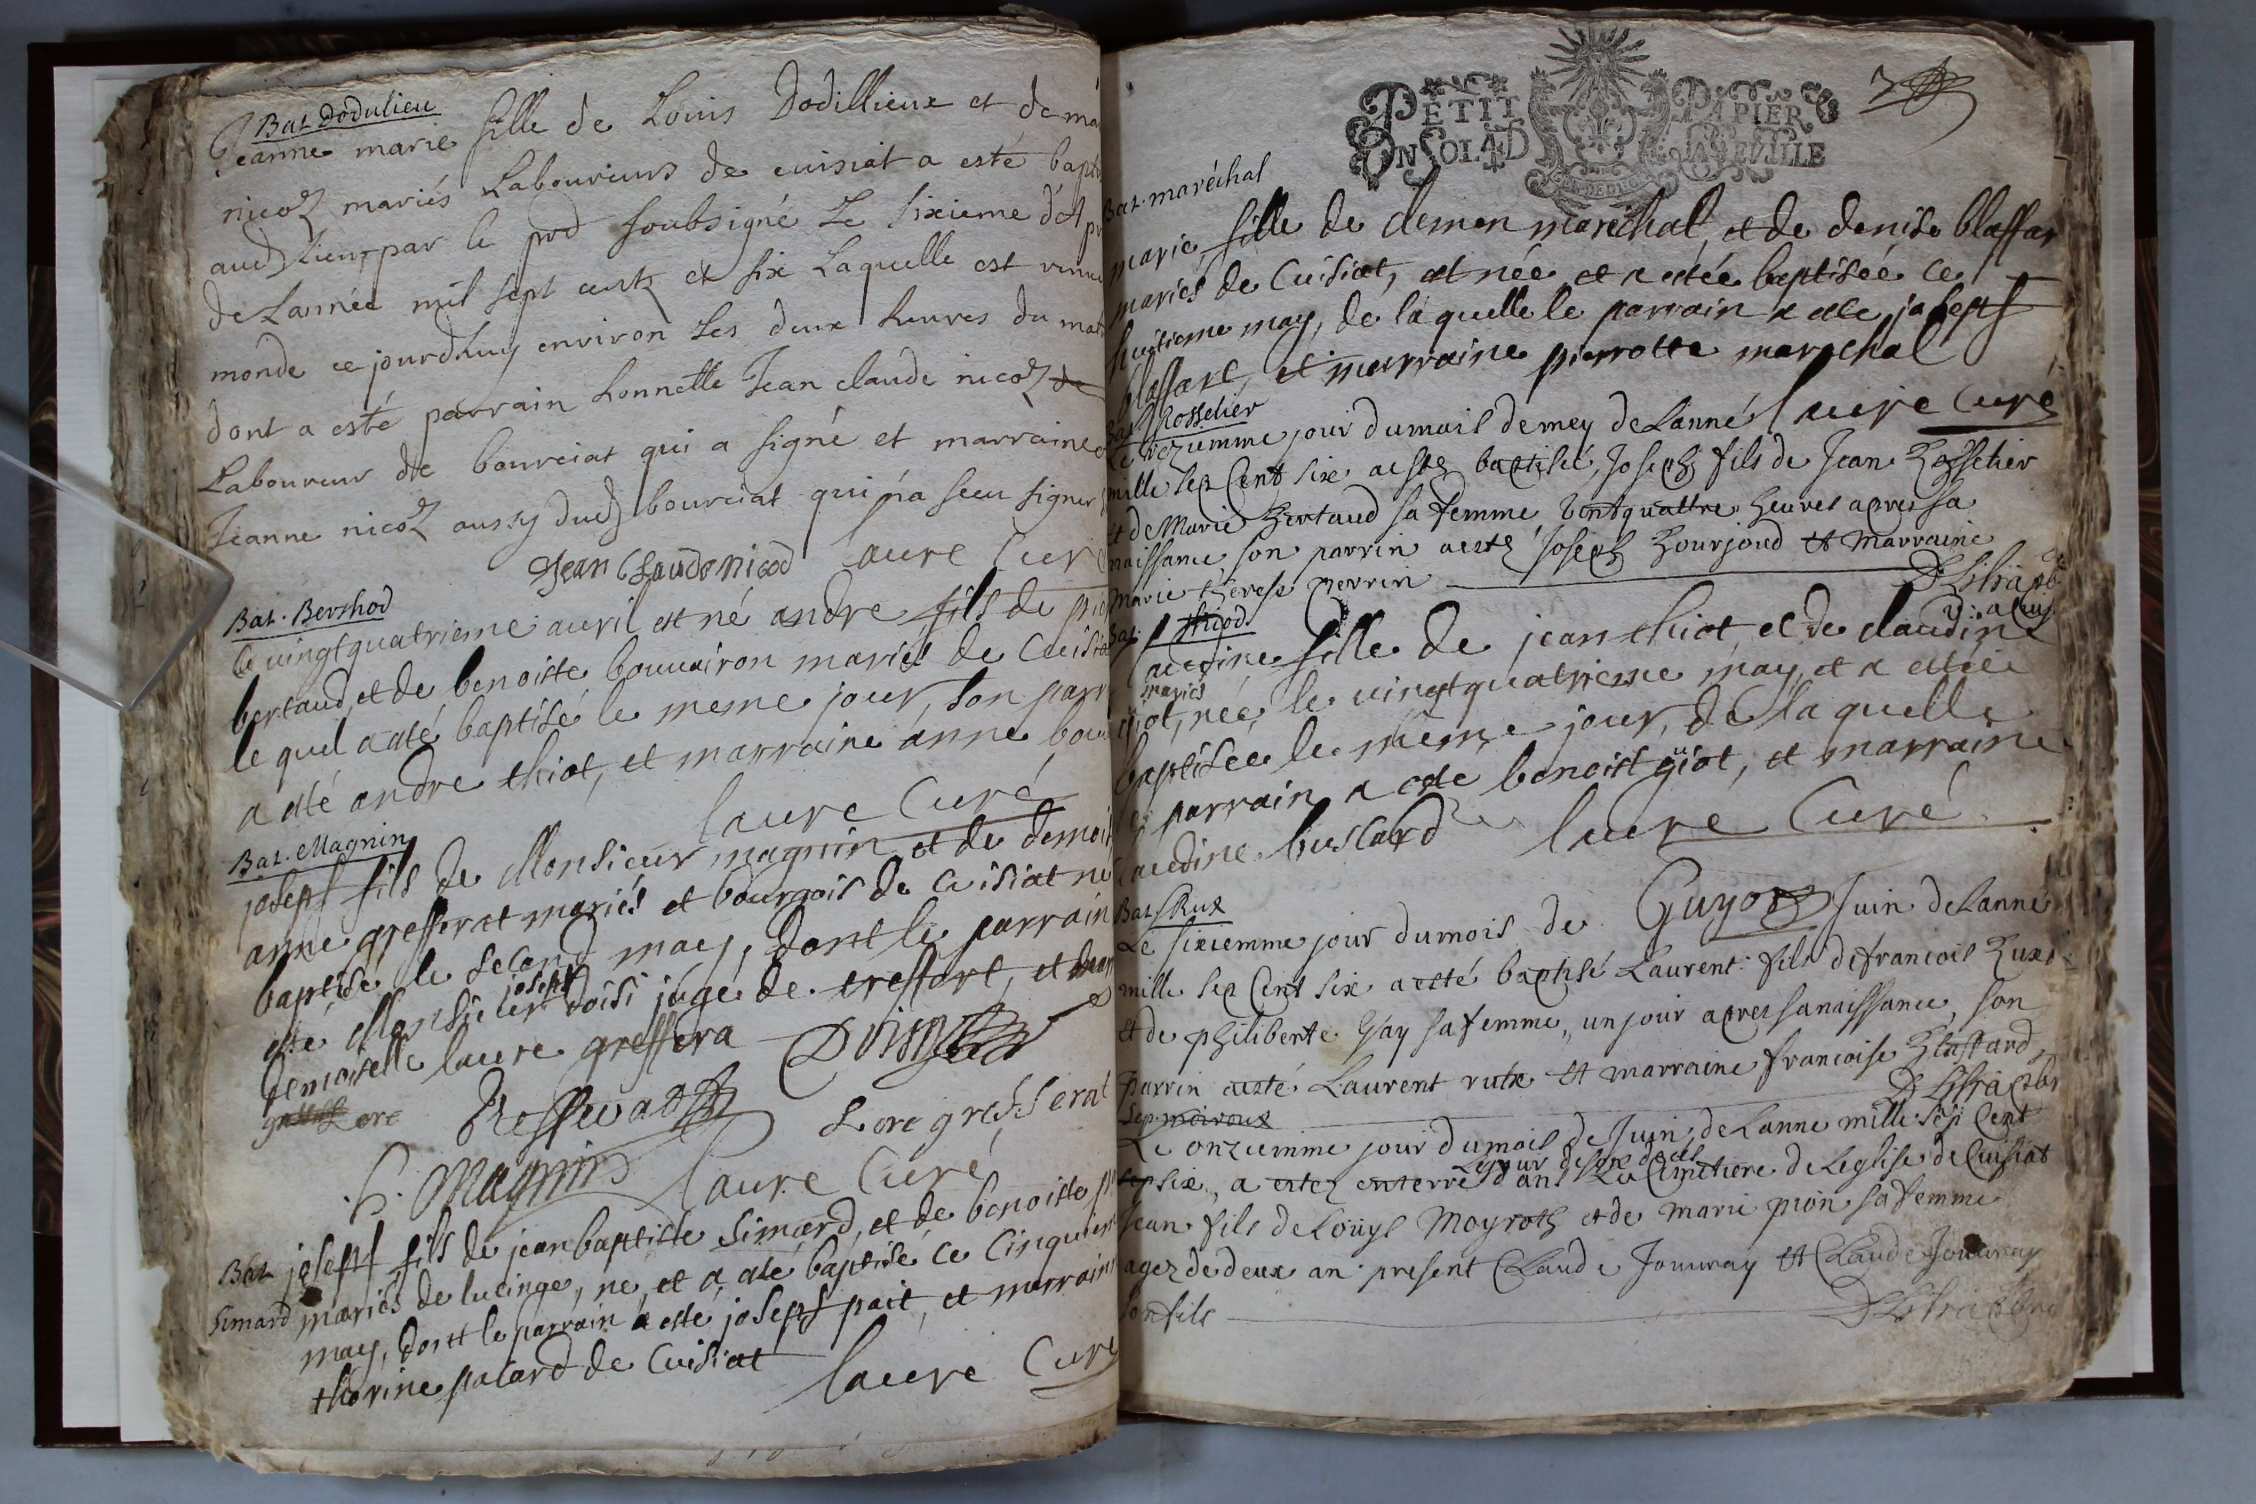 Bat Dodulieu
Jeanne marie fille de Louis Dodillieux et de ma
nicod mariés Laboureurs de cuisiat a esté bapt
aud lieu par le pnd soubsigné Le sixieme d'
de Lannée mil sept centz et six Laquelle est venue
monde ce jourdhuy environ Les deux heures du mat
dont a esté parrain honnette Jean claude nicod de
Laboureur de bourciat qui a signé et marraine
Jeanne nicod aussy dud bourciat qui n'a sceu signer
Jean Claude nicod laure Curé
Bat. Berthod
le vingtquatrieme auril est né andre fils de pie
bertaud, et de benoiste bouuairon mariés de Cuisiat
le quel a até baptisé le meme jour, son parr
a até andre thiot, et marraine anne bou
laure Curé
Bat. Magnin
joseph fils de Monsieur magnin et de demoi
anne grefferat mariés et bourgois de cuisiat né
baptisé le second may, dont le parrain
joseph
esté Monsieur doisi juge de treffort, et mar
demoiselle laure greffera
Lore grefferat
Magnin laure Curé
Bat joseph fils de jean baptiste Simard, et de benoiste p
Simard mariés de lucinge, ne, et a até baptisé ce Cinquie
may, dont le parrain a esté joseph pait, et marrain
therine palard de Cuisiat laure Curé
PETIT PAPIER
UN SOL 4 D LA FEUILLE
Bat. maréchal
marie fille de clemen marechal, et de denise blaffar
mariés de Cuisiat, at née et a atée baptisée ce
huitieme may, de laquelle le parrain a até joseph
blaffart, et marraine pierrotte marechal
laure Curé
Bat Rosselier
Le unziemme jour du mois de mey de Lanné
mille sep Cent six a estez baptisé, Joseph fils de Jean Rosselier
et de Marie Bertaud sa femme vintquattre heures apres sa
naissance, son parrin aestez Joseph Bourjoud et Marraine
Marie therese perrin
Bat. thiod
Claudine fille de jean thiot, et de claudine
mariés
giot, née, le vingtquatriesme may, et a atée
baptisée le meme jour, de laquelle
le parrain a até benoist giot, et marraine
Claudine buscard laure Curé
Guyot
Bat Rux
Le sixiemme jour du mois de Juin de Lanné
mille sep Cent six a esté baptisé Laurent fils de francois Rux
et de philiberte Gay sa femme, un jour apres sa naissance, son
parrin aesté Laurent rux et marraine francoise Blaffard
Sep. moiroux
Le onziemme jour du mois de Juin de Lanne mille sep Cent
Le jour de son deces
sep six, a estez enterré dans Le Cimetiere de Leglise de Cuisiat
Jean fils de Louys Moyroth et de marie pion sa femme
agez de deux an present Claude Jouvray et Claude Jouvray
son fils